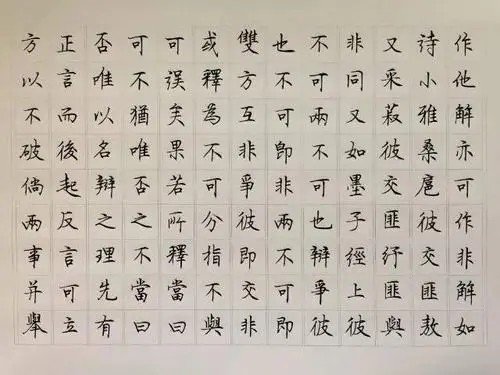 作他解亦可作非解如
詩小雅桑扈彼交匪敖
又采菽彼交匪紓匪與
非同又如墨子經上彼
不可兩不可也辯爭彼
也不可即非兩不可即
雙方互非爭彼即交非
或釋為不可分指不與
可誤矣果若所釋當曰
可不猶唯否之不當曰
否唯以名辯之理先有
正言而後起反言可立
方以不破倘兩事并舉